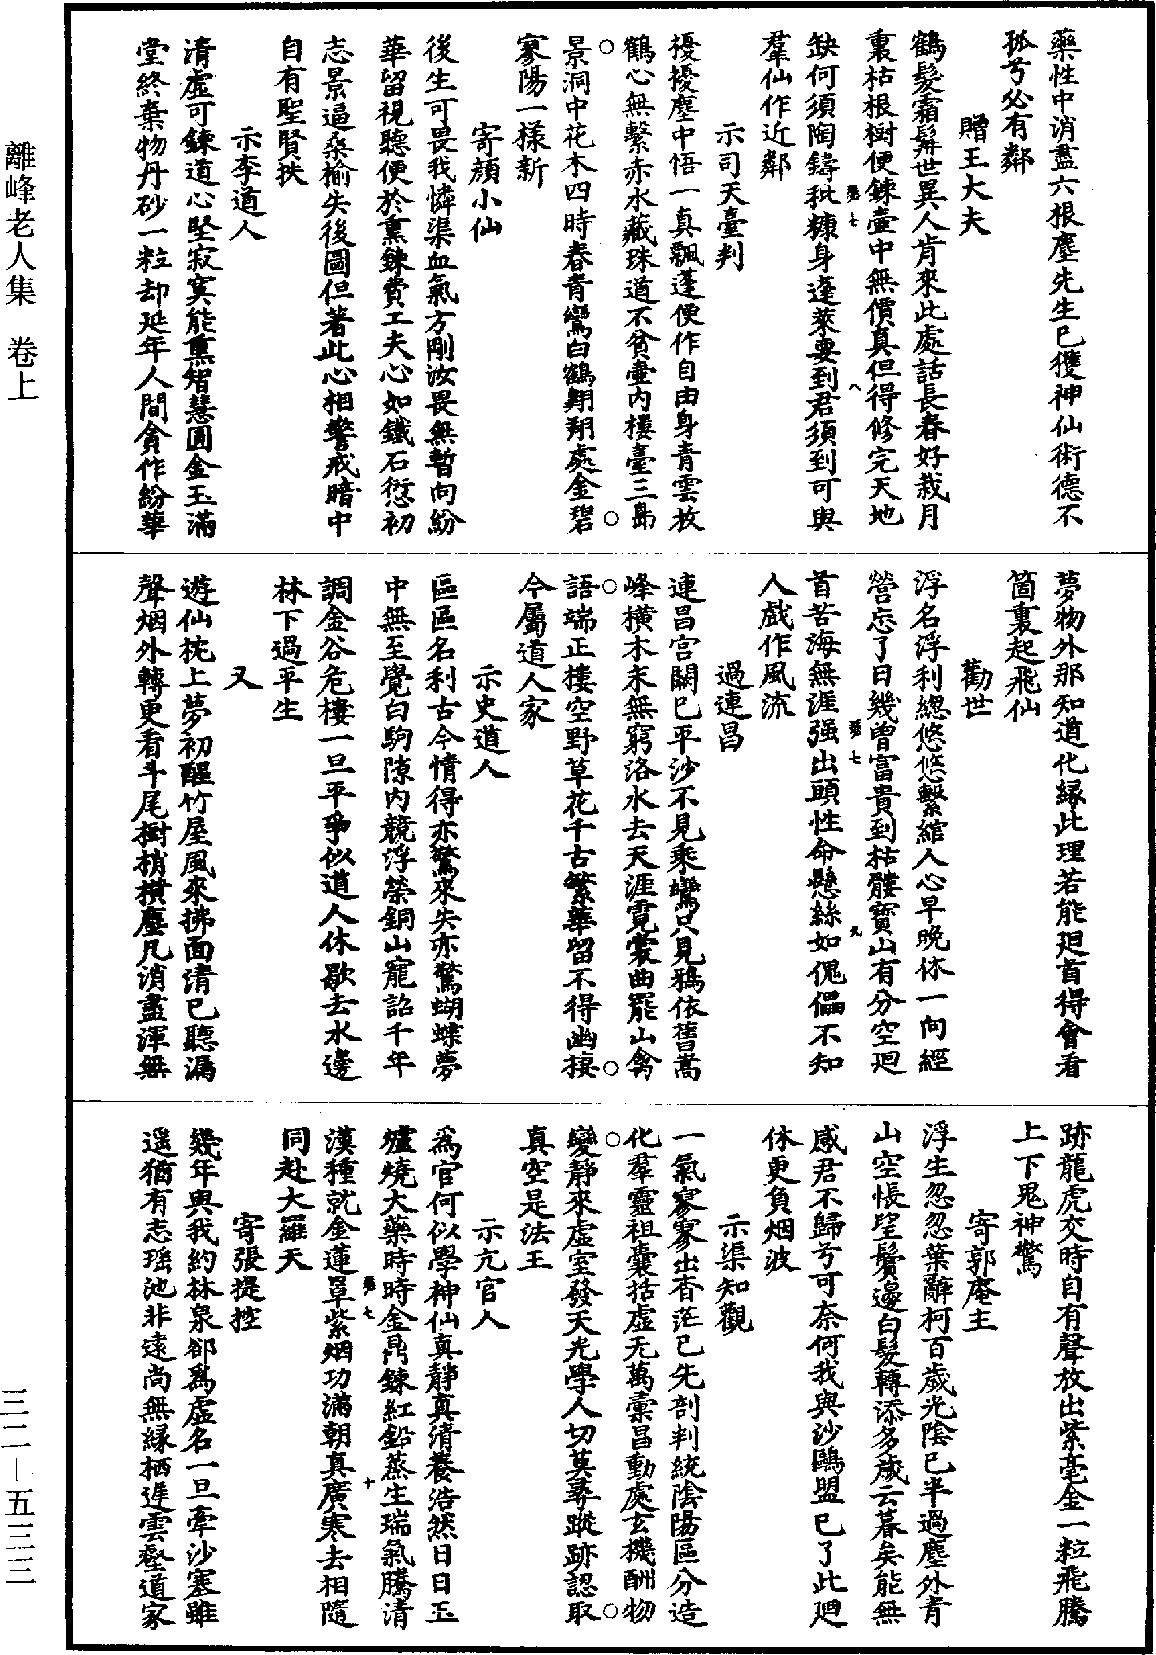 藥性中消盡六根塵先生已獲神仙術德不
孤兮必有鄰
贈王大夫
鶴髮霜髯世異人肯來此處話長春好栽月
裏枯根樹便鍊壼中無價真但得修完天地
缺何須陶鑄秕糠身蓬萊要到君須到可與
羣仙作近鄰
示司天臺判
擾擾塵中悟一真飄蓬便作自由身青雲放
鶴心無繫赤水藏珠道不貧壼內樓臺三島
景洞中花木四時春青鸞白鶴翺翔處金碧
寥陽一樣新
寄顏小仙
後生可畏我憐渠血氣方剛汝畏無暫向紛
華留視聽便於熏鍊費工夫心如鐵石愆初
志景逼桑榆失後圖但著此心相警戒暗中
自有聖賢扶
示李道人
清虛可鍊道心堅寂寞能熏智慧圓金玉滿
堂終棄物丹砂一粒却延年人間貪作紛華
夢物外那知道化緣此理若能廻首得會看
箇裏起飛仙
勸世
浮名浮利總悠悠繫綰人心早晚休一向經
營忘了日幾曾富貴到枯髏寶山有分空廻
首苦海無涯强出頭性命懸絲如傀儡不知
人戲作風流
過連昌
連昌宮闕已平沙不見乘鸞只見鴉依舊嵩
峰橫木末無窮洛水去天涯霓裳曲罷山禽
語端正樓空野草花千古繁華留不得幽棲
今屬道人家
示史道人
區區名利古今情得亦驚來失亦驚蝴蝶夢
中無至覺白駒隙內競浮榮銅山寵詔千年
調金谷危樓一旦平爭似道人休歇去水邊
林下過平生
又
遊仙枕上夢初醒竹屋風來拂面清已聽漏
聲烟外轉更看斗尾樹梢橫塵凡消盡渾無
跡龍虎交時自有聲放出紫毫金一粒飛騰
上下鬼神驚
寄郭庵主
浮生忽忽葉辭柯百歲光陰已半過塵外青
山空悵望鬢邊白髮轉添多歲云暮矣能無
感君不歸兮可奈何我與沙鷗盟已了此廻
休更負烟波
示渠知觀
一氣寥寥出杳茫已先剖判統陰陽區分造
化羣靈祖囊括虛无萬彙昌動處玄機酬物
變靜來虛室發天光學人切莫尋蹤跡認取
真空是法王
示亢官人
爲官何似學神仙真靜真清養浩然日日玉
爐燒大藥時時金鼎鍊紅鉛蒸生瑞氣騰清
漢種就金蓮罩紫烟功滿朝真廣寒去相隨
同赴大羅天
寄張提控
幾年與我約林泉卻爲虛名一旦牽沙塞雖
遥猶有志瑤池非遠尚無緣栖遲雲壑道家
離峰老人集　卷上
三二—五三三